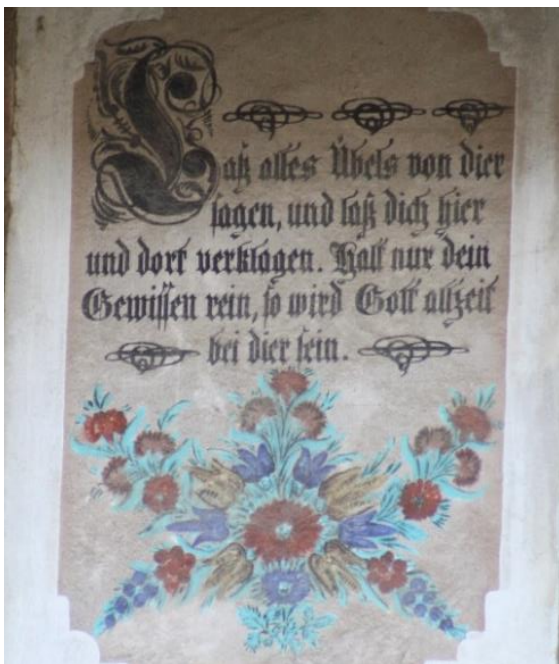 Laß alles Übels von dier
sagen, und laß dich hier
und dort verklagen. Halt nur dein
Gewissen rein, so wird Gott allzeit
bei dier sein.